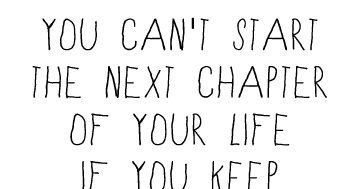 YOU CAN'T START
THE NEXT CHAPTER
OF YOUR LIFE
IF YOU KEEP